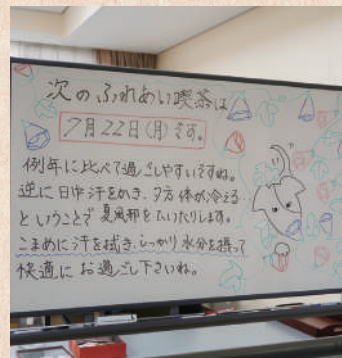 次のふれあい喫茶は
7月22日(月)です。
例年に比べて過ごしやすいですね。
逆に日中汗をかき、夕方体が冷える
ということで夏風邪をひいたりします。
こまめに汗を拭き、しっかり水分を摂って
快適にお過ごし下さいね。